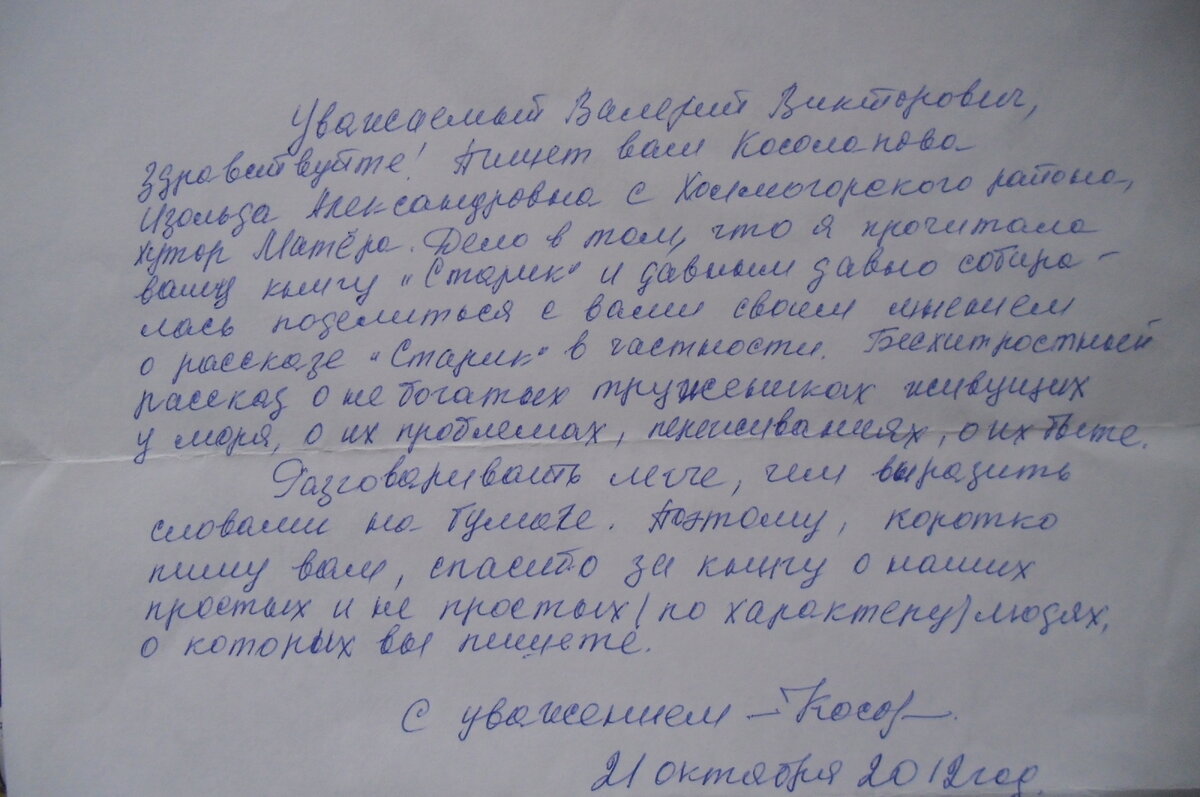 Уважаемый Валерий Викторович,
здравствуйте! Пишет вам Косолапова
Изольда Александровна с Холмогорского района,
хутор Матёра. Дело в том, что я прочитала
вашу книгу "Старик" и давным давно собира-
лась поделиться с вами своим мнением
о рассказе "Старик" в частности. Бесхитростный
рассказ о не богатых тружениках живущих
у моря, о их проблемах, переживаниях, о их быте.
Разговаривать легче, чем выразить
словами на бумаге. Поэтому, коротко
пишу вам, спасибо за книгу о наших
простых и не простых (по характеру) людях,
о которых вы пишете.
С уважением — Косол—.
21 октября 2012 год.